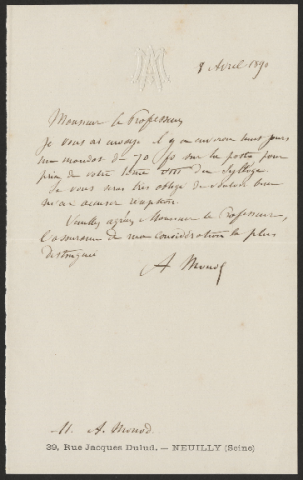 9 Avril 1890
Monsieur le Professeur
Je vous ai envoyé il y a environ huit jours
un mandat de 70 fs sur la poste pour
prix de votre tome VIII du Sylloge
Je vous serais très obligé de vouloir bien
m'en accuser réception.
Veuillez agréer, Monsieur le Professeur,
l'assurance de ma considération la plus
distinguée
A Monod
M. A. Monod.
39, Rue Jacques Dulud. — NEUILLY (Seine)